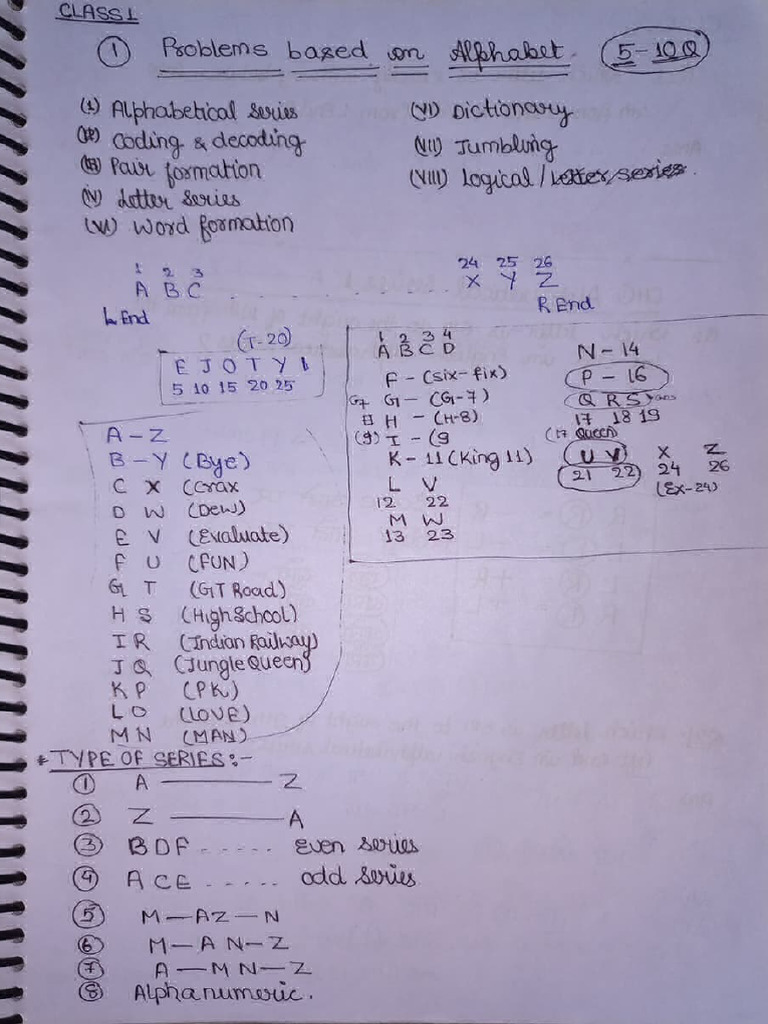 CLASS 1
① Problems based on Alphabet. 5-10Q
(I) Alphabetical series
(II) Coding & decoding
(III) Pair formation
(IV) Letter series
(VI) Word formation
(VI) Dictionary
(VII) Jumbling
(VIII) Logical / Letter series.
1 2 3
A B C . . . . . . . . . . .
L End
24 25 26
X Y Z
R End
(T-20)
E J O T Y
5 10 15 20 25
A - Z
B - Y (Bye)
C X (Crax
D W (Dew)
E V (Evaluate)
F U (FUN)
G T (GT Road)
H S (High School)
I R (Indian Railway)
J Q (Jungle Queen)
K P (PK)
L O (LOVE)
M N (MAN)
1 2 3 4
A B C D
F - (six-fix)
G7 G - (G-7)
H - (H-8)
(9) I - (9
K - 11 (King 11)
L V
12 22
M W
13 23
N - 14
P - 16
Q R S
17 18 19
(17 Queen)
U V X Z
21 22 24 26
(Ex-24)
* TYPE OF SERIES :-
① A ——— Z
② Z ——— A
③ B D F . . . . . Even series
④ A C E . . . . . odd series
⑤ M — A Z — N
⑥ M — A N — Z
⑦ A — M N — Z
⑧ Alphanumeric.